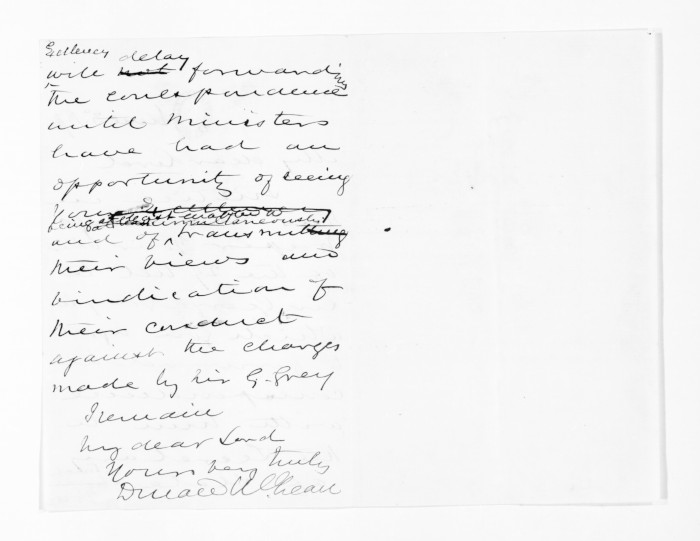 Excellency delay
will not forwarding
the correspondence
until Ministers
have had an
opportunity of seeing
Your Excellency
being at least enabled to
and of simultaneously transmitting
their views and
vindication of
their conduct
against the charges
made by Sir G. Grey
I remain
My dear Lord
Yours very truly
Donald McLean